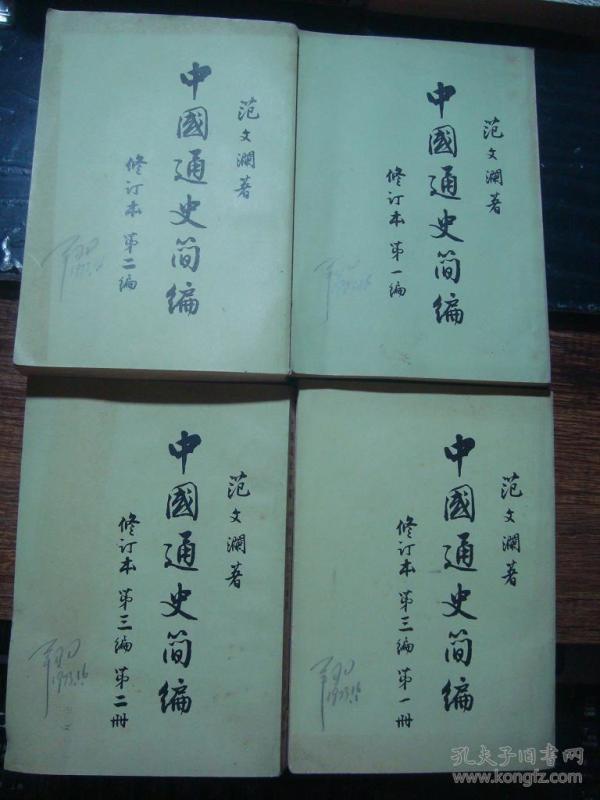 范文瀾著
中國通史简编
修订本 第二编
范文瀾著
中國通史简编
修订本 第一编
范文瀾著
中國通史简编
修订本 第三编 第二册
1973.1.6
范文瀾著
中國通史简编
修订本 第三编 第一册
孔夫子旧书网
www.kongfz.com